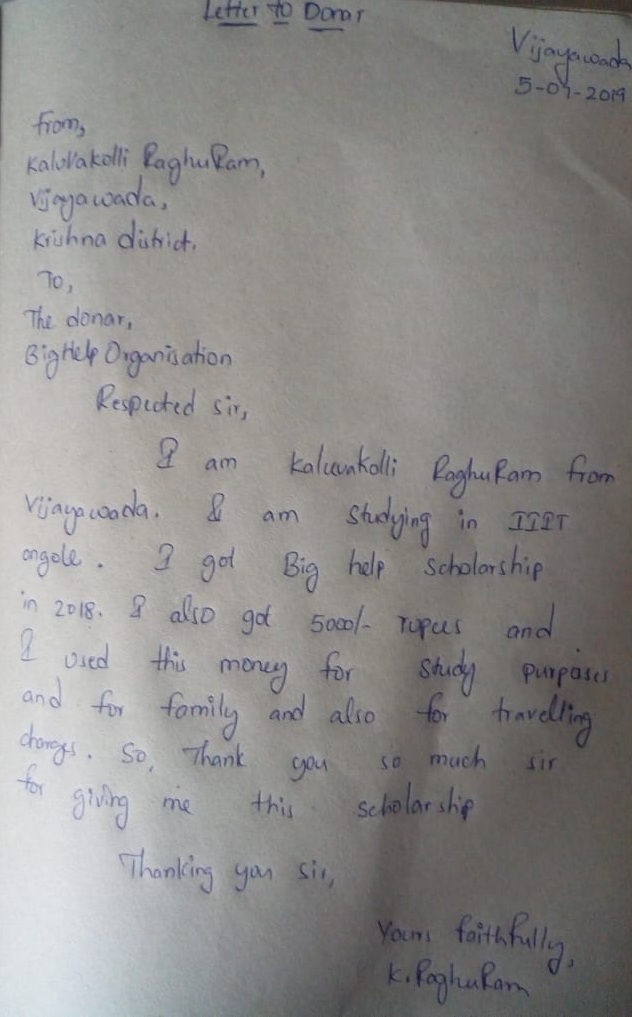 Letter to Donar
Vijayawada
5-07-2019
from,
Kaluvakolli RaghuRam,
Vijayawada,
Krishna district.
To,
The donar,
Big Help Organisation
Respected sir,
I am Kaluvakolli RaghuRam from
Vijayawada. I am studying in IIIT
ongole. I got Big help scholarship
in 2018. I also got 5000/- rupees and
I used this money for study purposes
and for family and also for travelling
charges. So, Thank you so much sir
for giving me this scholarship
Thanking you sir,
Yours faithfully,
K.RaghuRam